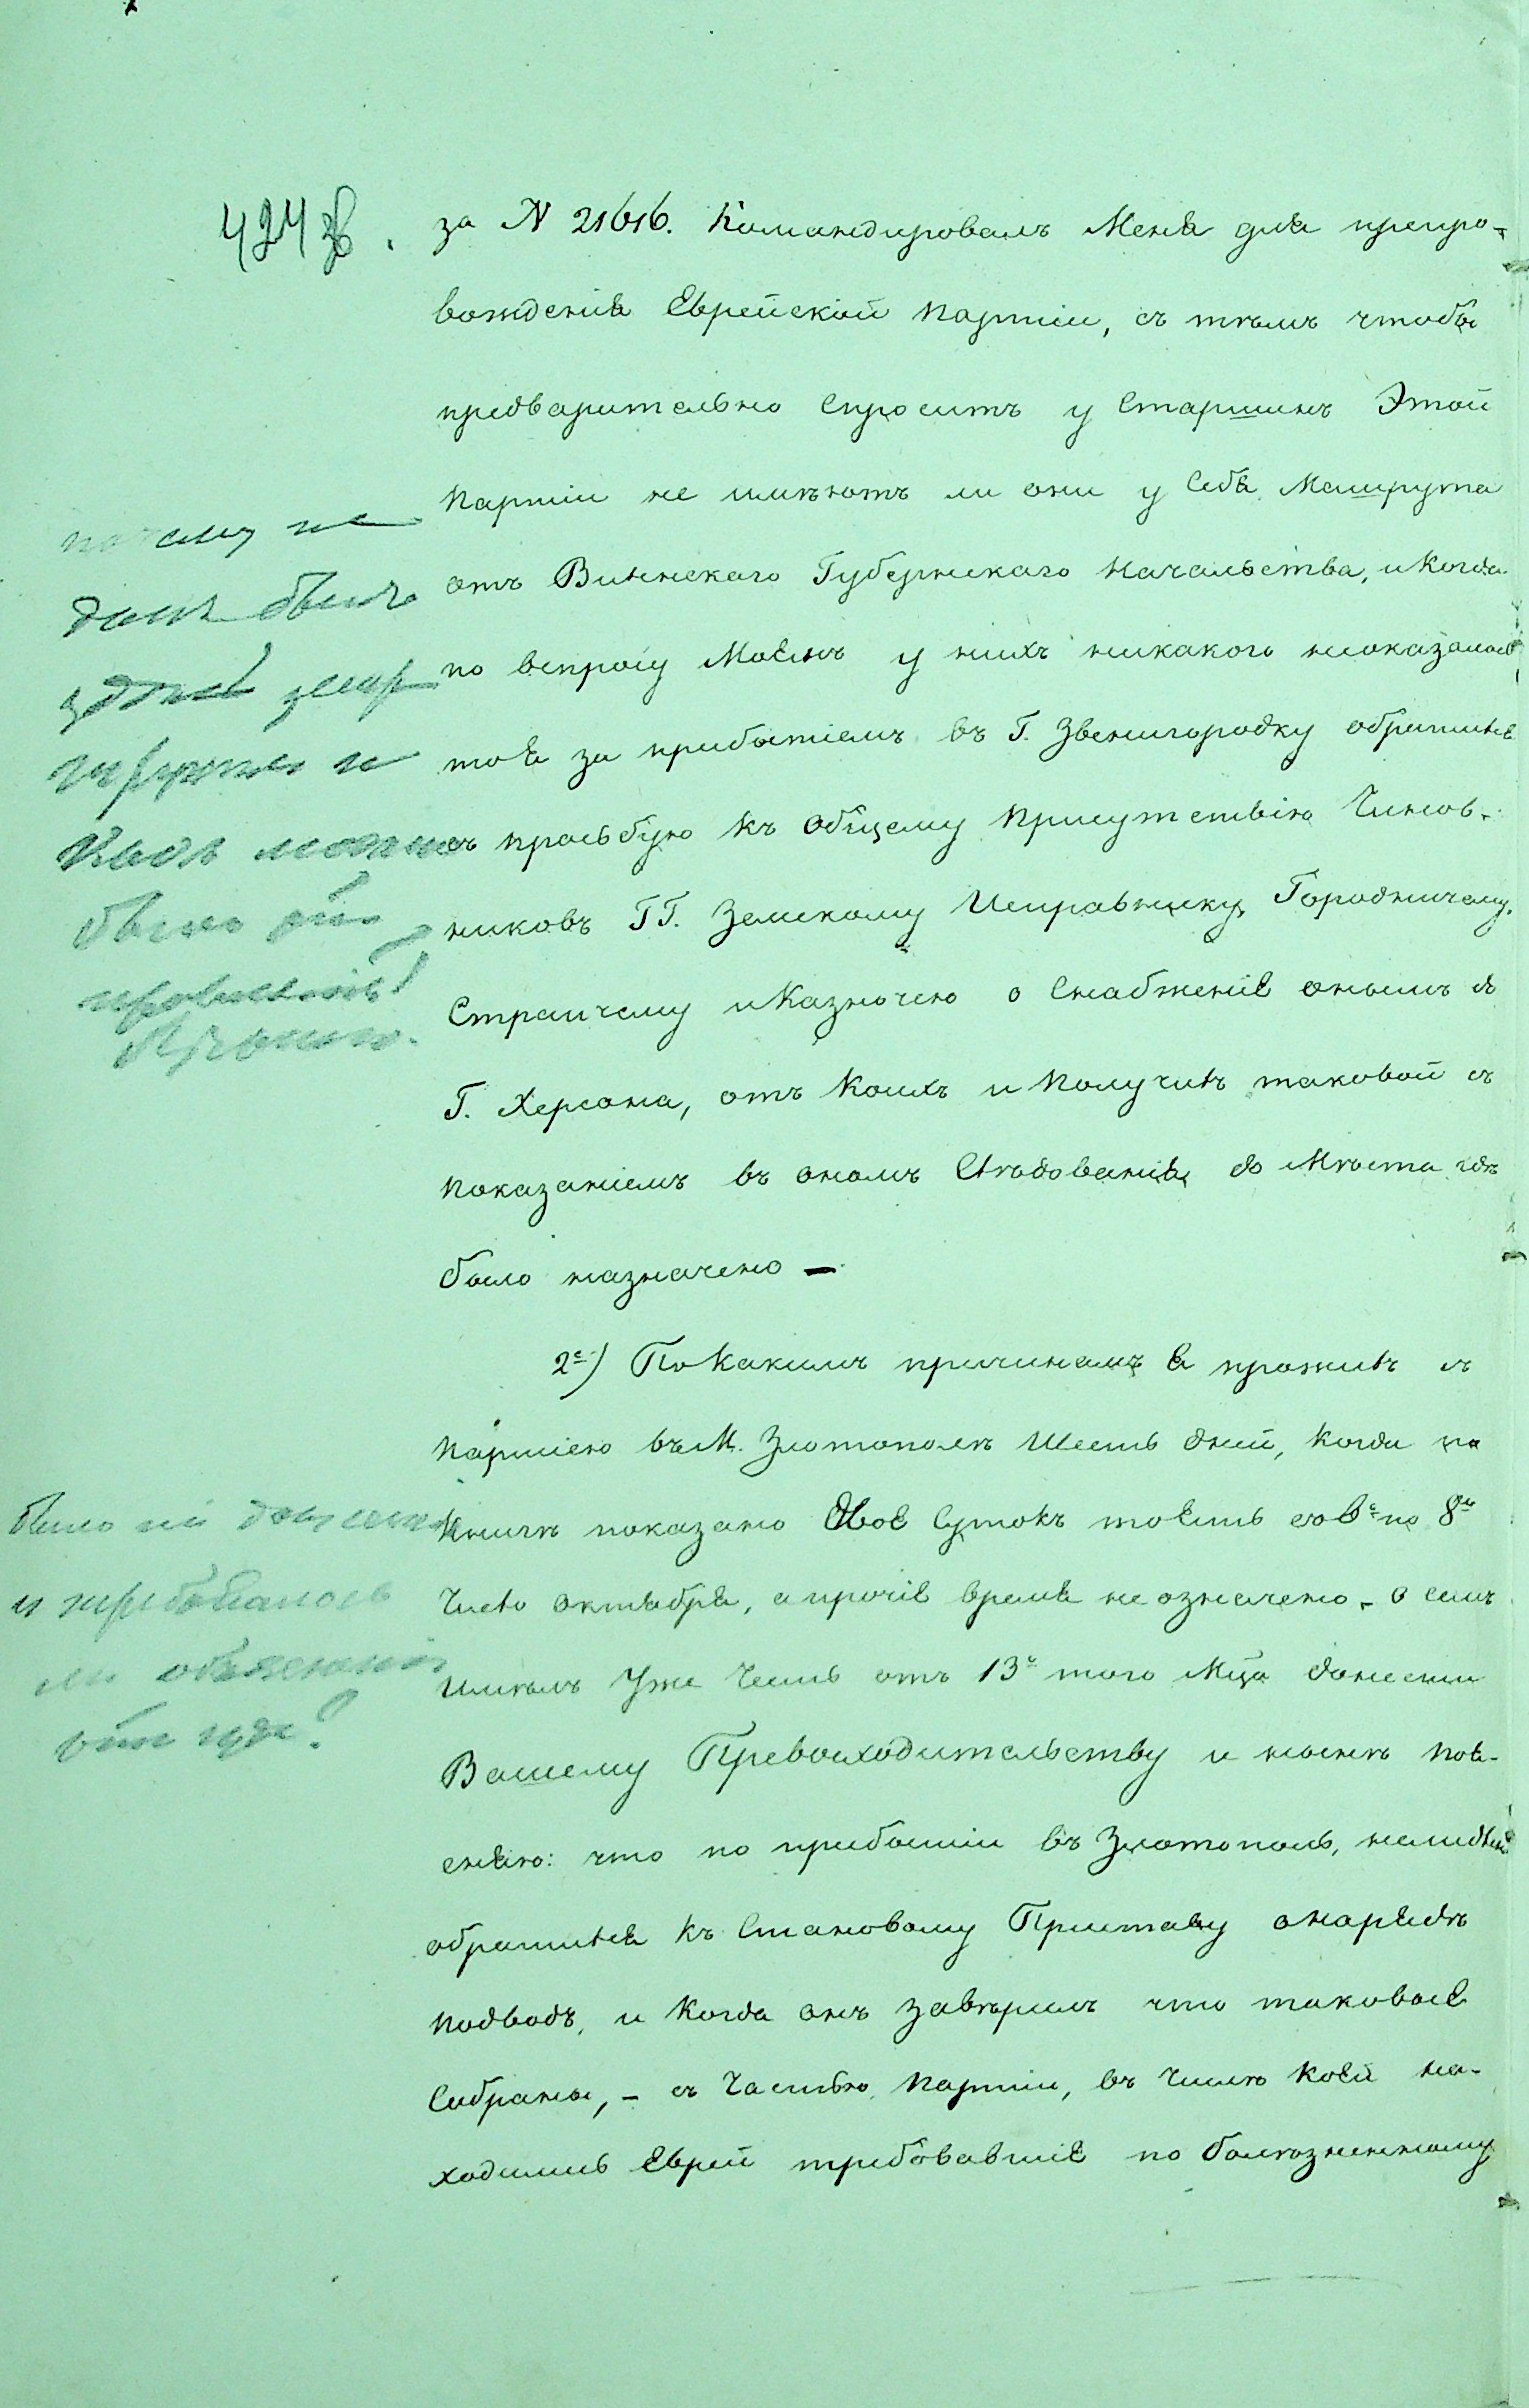 424 об.
за N 21616. Командировалъ Меня для препро-
вожденія Еврейской партіи, съ тѣмъ чтобы
предварительно Спросить у Старшинъ Этой
партіи не имѣютъ ли они у Себя Маширута
отъ Виленскаго Губернскаго Начальства, и Когда
по вопросу Моемъ у нихъ никакого неоказалось
то я за прибытіемъ въ Г. Звенигородку обратился
съ прозьбую Къ Общему присутствію Чинов-
никовъ ГГ. Земскому Исправнику Городничему,
Стряпчему и Казначею о Снабженіе онымъ до
Г. Херсона, отъ Коихъ и Получилъ таковой съ
показаніемъ въ ономъ Слѣдованія до Мѣста гдѣ
было назначено —
2е) По Какимъ причинамъ я прожилъ съ
партіею въ М. Златополѣ Шесть дней, Когда по
Книгѣ показано Двое Сутокъ тоесть со 6е по 8е
Число Октября, а прочіе время не означено - о семъ
имѣлъ Уже Честь отъ 13е того Мца донести
Вашему Превосходительству и нынѣ поя-
сняю: что по прибытіи въ Златополь,
обратился Къ Становому Приставу о нарядѣ
подводъ, и Когда онъ завѣрилъ что таковые
Собраны, - съ Частью партіи, въ Числѣ Коей на-
ходились Евреи требовавшіе по болѣзненному
почему не
данъ былъ
было ли донесено
и требовалось
ли объясненія